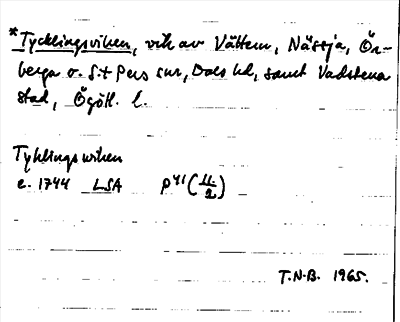 *Tycklingsviken, vik av Vättern, Nässja, Ör-
berga o. S:t Pers snr, Dals hd, samt Vadstena
stad, Ögötl. l.
Tyklingswiken
c. 1744 LSA P41 (11/2)
T.N.B. 1965.